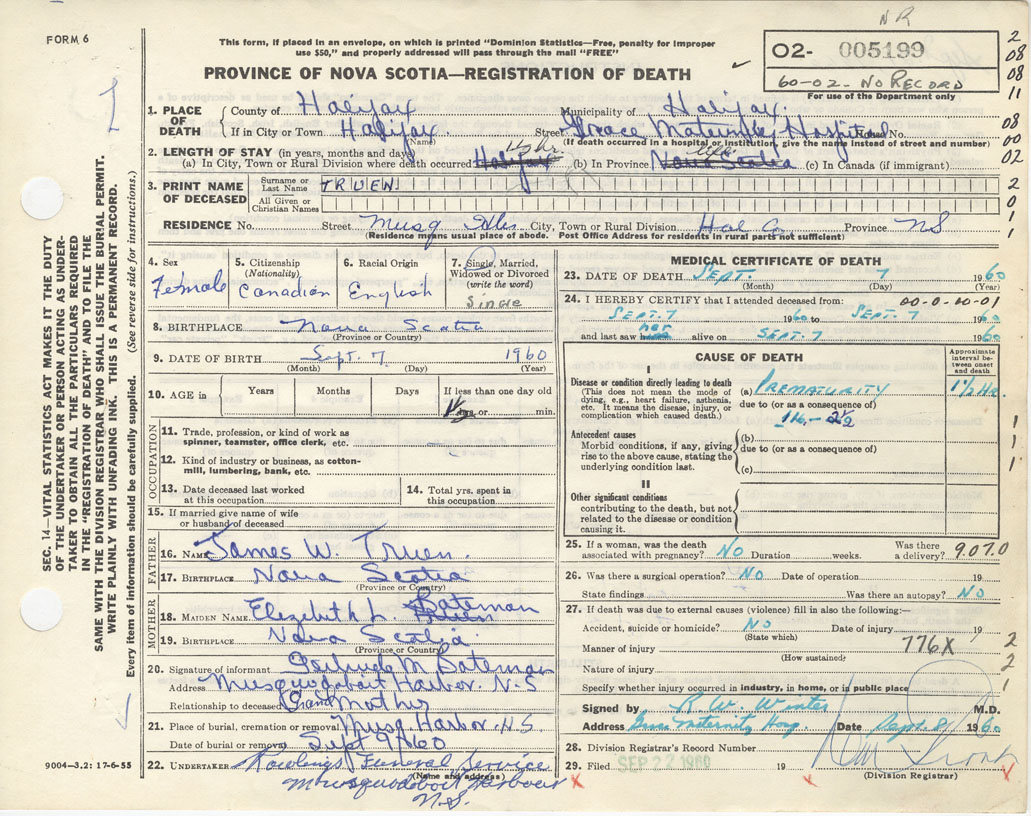 NR
FORM 6
This form, if placed in an envelope, on which is printed "Dominion Statistics—Free, penalty for improper
use $50," and properly addressed will pass through the mail "FREE"
02- 005199
60-02- NO RECORD
For use of the Department only
PROVINCE OF NOVA SCOTIA—REGISTRATION OF DEATH
1. PLACE OF DEATH
County of Halifax Municipality of Halifax
If in City or Town Halifax Street Grace Maternity Hospital House No.
(Name) (If death occurred in a hospital or institution, give the name instead of street and number)
2. LENGTH OF STAY (in years, months and days) 1½ hr. Life
(a) In City, Town or Rural Division where death occurred Halifax (b) In Province Nova Scotia (c) In Canada (if immigrant)
3. PRINT NAME OF DECEASED
Surname or Last Name TRUEN
All Given or Christian Names
RESIDENCE No. Street Musq Hbr City, Town or Rural Division Hal Co. Province NS
(Residence means usual place of abode. Post Office Address for residents in rural parts not sufficient)
4. Sex
Female
5. Citizenship
(Nationality)
Canadian
6. Racial Origin
English
7. Single, Married,
Widowed or Divorced
(write the word)
Single
8. BIRTHPLACE Nova Scotia
(Province or Country)
9. DATE OF BIRTH Sept. 7 1960
(Month) (Day) (Year)
10. AGE in Years Months Days If less than one day old
1½ hrs. or min.
OCCUPATION
11. Trade, profession, or kind of work as
spinner, teamster, office clerk, etc.
12. Kind of industry or business, as cotton-
mill, lumbering, bank, etc.
13. Date deceased last worked
at this occupation
14. Total yrs. spent in
this occupation
15. If married give name of wife
or husband of deceased
FATHER
16. NAME James W. Truen.
17. BIRTHPLACE Nova Scotia
(Province or Country)
MOTHER
18. MAIDEN NAME Elizabeth L. Bateman
19. BIRTHPLACE Nova Scotia
(Province or Country)
20. Signature of informant Gertrude M Bateman
Address Musquodoboit Harbor. N-S
Relationship to deceased Grand Mother
21. Place of burial, cremation or removal Musq Harbor. N.S
Date of burial or removal Sept 9/60
22. UNDERTAKER Rowlings Funeral Service
(Name and address)
Musquodoboit Harbour
N.S.
MEDICAL CERTIFICATE OF DEATH
23. DATE OF DEATH SEPT. 7 1960
(Month) (Day) (Year)
24. I HEREBY CERTIFY that I attended deceased from: 00-0-00-01
SEPT. 7 1960 to SEPT. 7 1960
and last saw her alive on SEPT. 7 1960
CAUSE OF DEATH
Approximate
interval
between onset
and death
I
Disease or condition directly leading to death
(This does not mean the mode of
dying, e.g., heart failure, asthenia,
etc. It means the disease, injury, or
complication which caused death.)
(a) PREMATURITY 1½ Hr.
due to (or as a consequence of)
Antecedent causes
Morbid conditions, if any, giving
rise to the above cause, stating the
underlying condition last.
(b)
due to (or as a consequence of)
(c)
II
Other significant conditions
contributing to the death, but not
related to the disease or condition
causing it.
25. If a woman, was the death
associated with pregnancy? No Duration weeks. Was there
a delivery? 9070
26. Was there a surgical operation? No Date of operation 19
State findings Was there an autopsy? No
27. If death was due to external causes (violence) fill in also the following:
Accident, suicide or homicide? No Date of injury 19
(State which)
Manner of injury 776X
(How sustained)
Nature of injury
Specify whether injury occurred in industry, in home, or in public place
Signed by R.W. Winter M.D.
Address Grace Maternity Hosp Date Sept. 8 1960
28. Division Registrar's Record Number
29. Filed SEP 22 1960 19
(Division Registrar)
SEC. 14—VITAL STATISTICS ACT MAKES IT THE DUTY
OF THE UNDERTAKER OR PERSON ACTING AS UNDER-
TAKER TO OBTAIN ALL THE PARTICULARS REQUIRED
IN THE "REGISTRATION OF DEATH" AND TO FILE THE
SAME WITH THE DIVISION REGISTRAR WHO SHALL ISSUE THE BURIAL PERMIT.
WRITE PLAINLY WITH UNFADING INK. THIS IS A PERMANENT RECORD.
Every item of information should be carefully supplied. (See reverse side for instructions.)
9004—3.2: 17-6-55
2
08
08
11
08
00
02
2
0
1
1
1
1
1
2
2
1